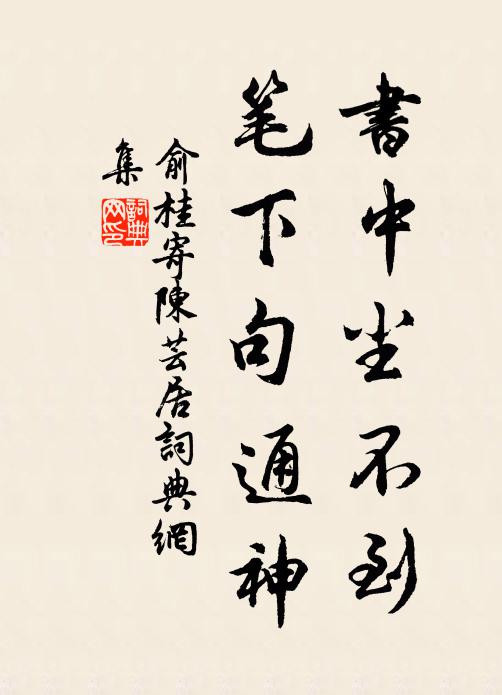 書中尘不到
笔下句通神
俞桂寄陳芸居詞典網
集
詞典网印